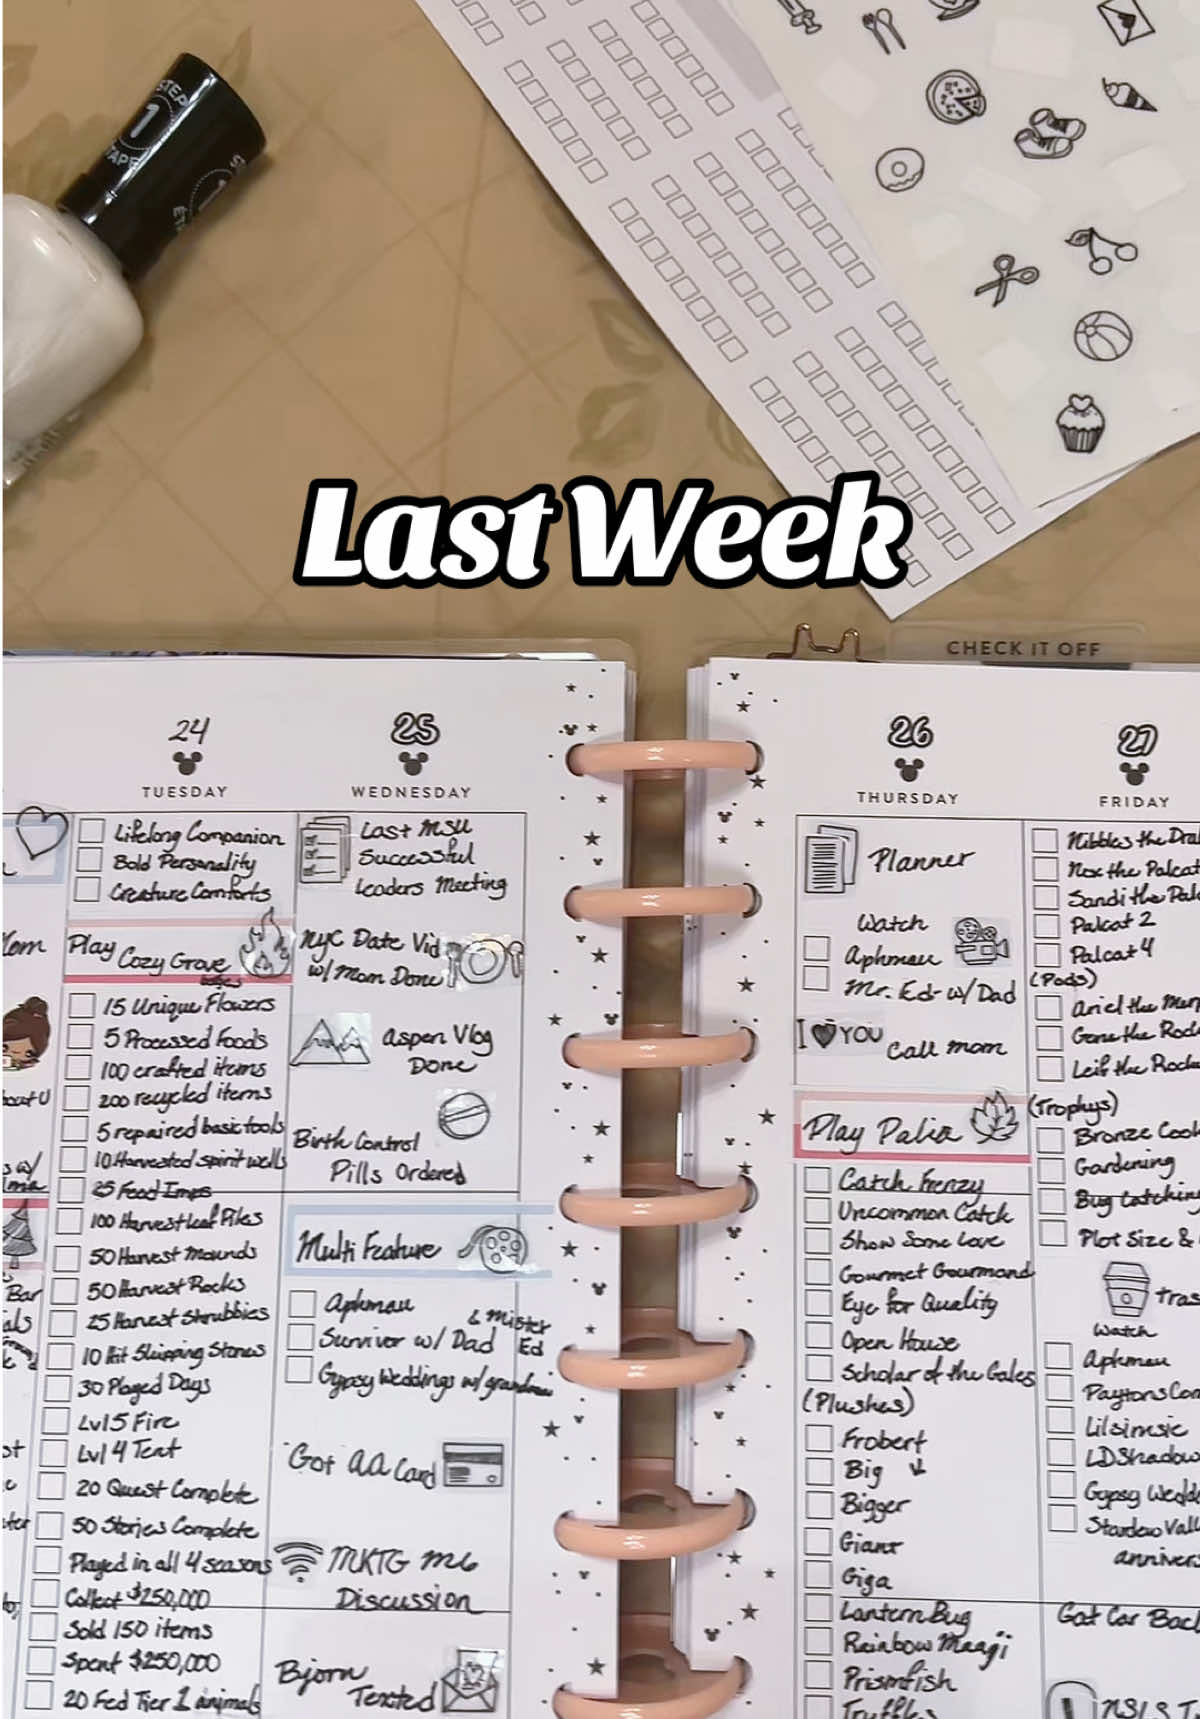 STEP
1
TAPE
Last Week
CHECK IT OFF
24
TUESDAY
Lifelong Companion
Bold Personality
Creature Comforts
Play
Cozy Grove
15 Unique Flowers
5 Processed Foods
100 crafted items
200 recycled items
5 repaired basic tools
10 Harvested spirit wells
25 Feed Imps
100 Harvest leaf Piles
50 Harvest Mounds
50 Harvest Rocks
25 Harvest Shrubbies
10 Hit Skipping Stones
30 Played Days
Lvl 5 Fire
Lvl 4 Tent
20 Quest Complete
50 Stories Complete
Played in all 4 seasons
Collect $250,000
Sold 150 items
Spent $250,000
20 Fed Tier 1 animals
25
WEDNESDAY
Last MSU
Successful
Leaders Meeting
NYC Date Vid
w/ Mom Done
Aspen Vlog
Done
Birth Control
Pills Ordered
Multi Feature
Aphmau
& Mister
Survivor w/ Dad Ed
Gypsy Weddings w/ grandma
Got AA Card
MKTG M6
Discussion
Bjorn
Texted
26
THURSDAY
Planner
Watch
Aphmau
Mr. Ed w/ Dad
I YOU
Call mom
Play Palia
Catch Frenzy
Uncommon Catch
Show Some Love
Gourmet Gourmand
Eye for Quality
Open House
Scholar of the Gales
(Plushes)
Frobert
Big
Bigger
Giant
Giga
Lantern Bug
Rainbow Maagi
Prismfish
Truffles
27
FRIDAY
Nibbles the Dra
Nox the Palcat
Sandi the Pal
Palcat 2
Palcat 4
(Pods)
Ariel the Mer
Gene the Rock
Leif the Rock
(Trophys)
Bronze Cook
Gardening
Bug Catching
Plot Size &
Tras
Watch
Aphmau
Paytons Com
Lilsimsie
LDShadow
Gypsy Wedd
Stardew Vall
annivers
Got Car Back
NSLS T